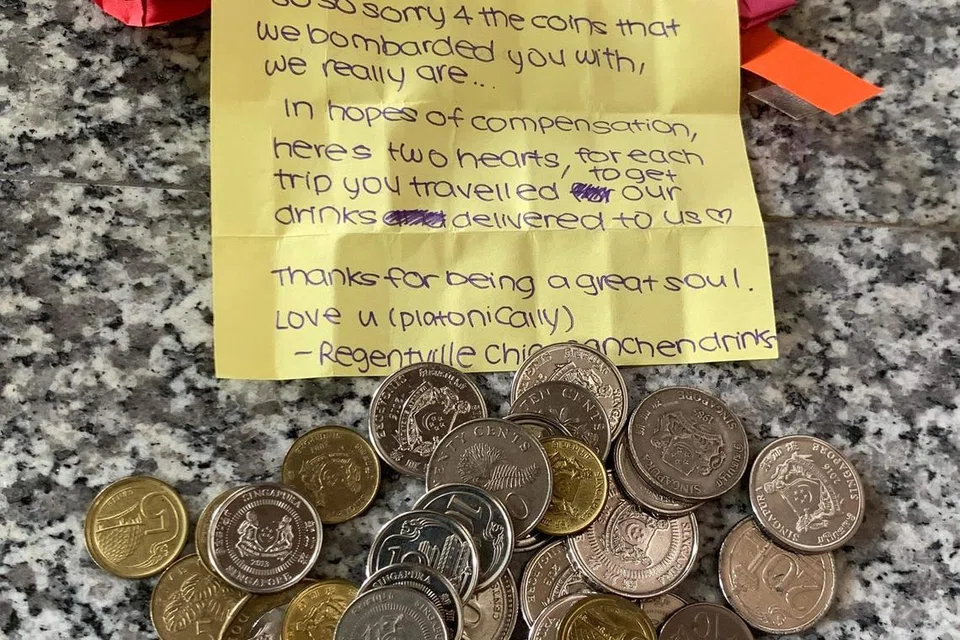 so so sorry 4 the coins that
we bombarded you with,
we really are...
In hopes of compensation,
heres two hearts, for each
trip you travelled to get our
drinks delivered to us ♡
Thanks for being a great soul.
Love u (platonically)
- Regentville drinks
FIFTY CENTS
TEN CENTS
SINGAPORE
SINGAPURA
2013
SINGAPORE
SINGAPURA
5
10
1